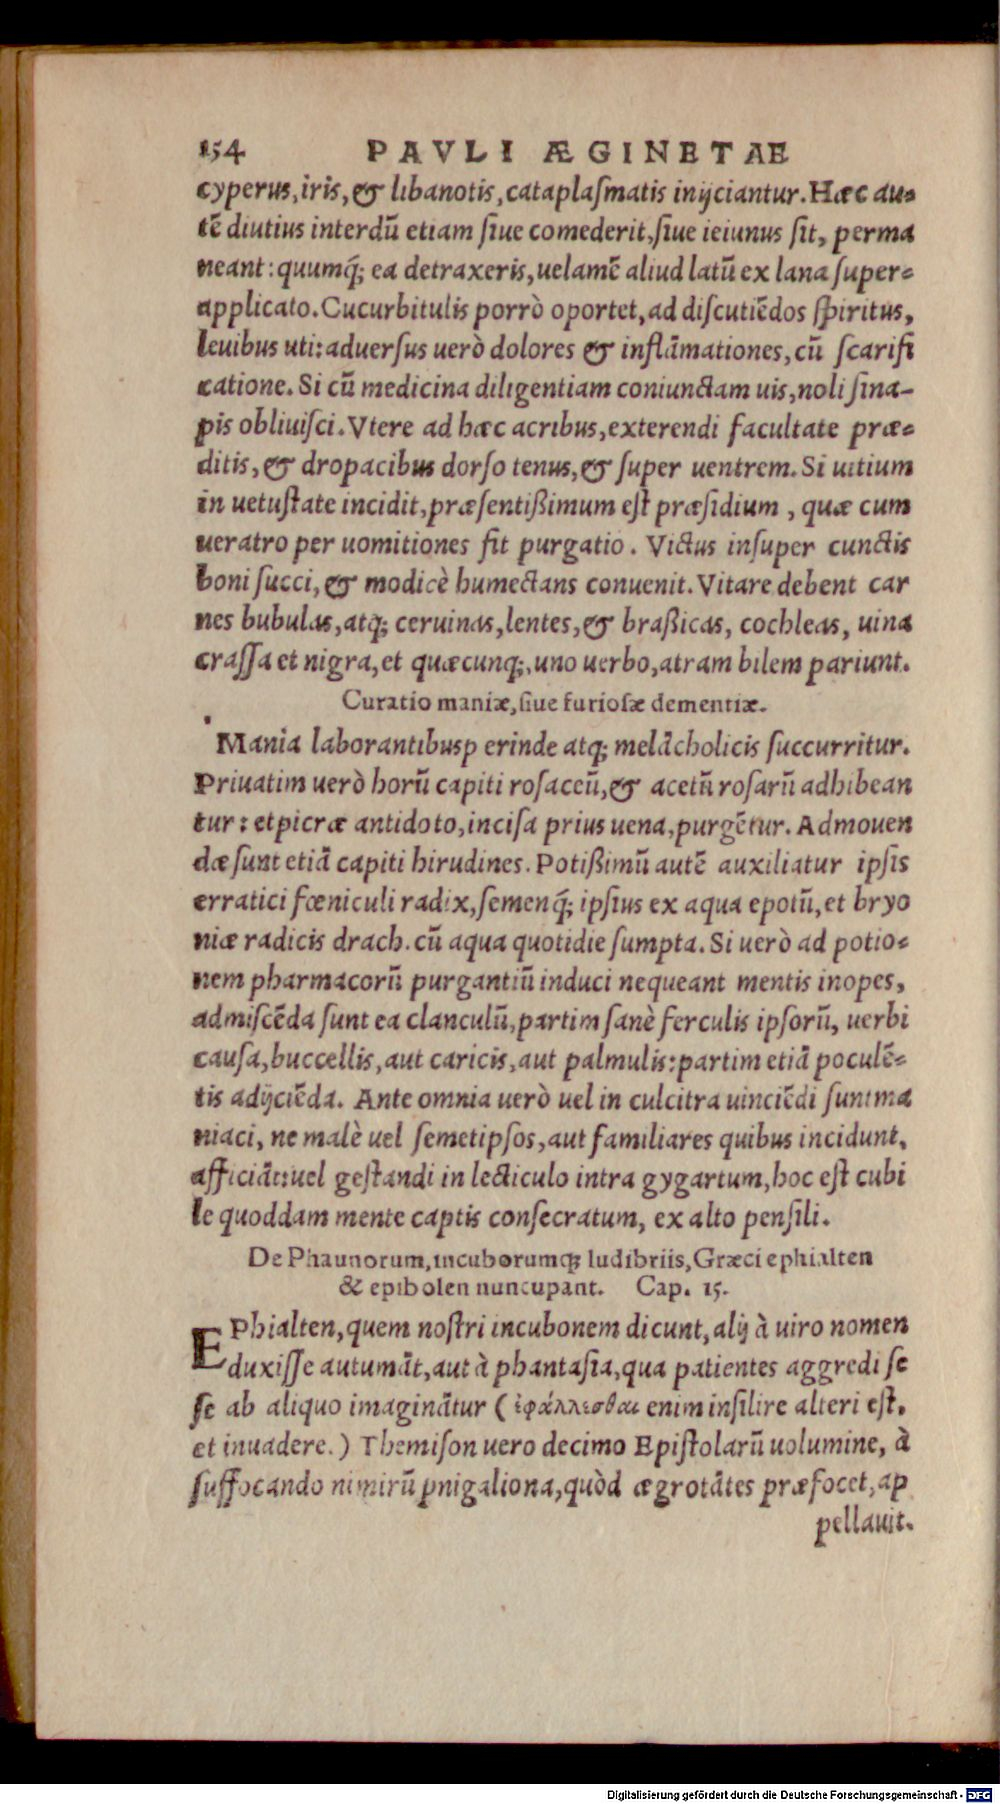 154 PAVLI ÆGINETAE
cyperus, iris, & libanotis, cataplaſmatis inijciantur. Hæc au-
tē diutius interdū etiam ſiue comederit, ſiue ieiunus ſit, perma
neant: quumq́; ea detraxeris, uelamē aliud latū ex lana ſuper-
applicato. Cucurbitulis porrò oportet, ad diſcutiēdos ſpiritus,
leuibus uti: aduerſus uerò dolores & inflāmationes, cū ſcarifi
catione. Si cū medicina diligentiam coniunctam uis, noli ſina-
pis obliuiſci. Vtere ad hæc acribus, exterendi facultate præ-
ditis, & dropacibus dorſo tenus, & ſuper uentrem. Si uitium
in uetuſtate incidit, præſentißimum eſt præſidium, quæ cum
ueratro per uomitiones fit purgatio. Victus inſuper cunctis
boni ſucci, & modicè humectans conuenit. Vitare debent car
nes bubulas, atq; ceruinas, lentes, & braßicas, cochleas, uina
craſſa et nigra, et quæcunq;, uno uerbo, atram bilem pariunt.
Curatio maniæ, ſiue furioſæ dementiæ.
Mania laborantibusp erinde atq; melācholicis ſuccurritur.
Priuatim uerò horū capiti roſaceū, & acetū roſarū adhibean
tur: et picræ antidoto, inciſa prius uena, purgētur. Admouen
dæ ſunt etiā capiti hirudines. Potißimū autē auxiliatur ipſis
erratici fœniculi radix, ſemenq́; ipſius ex aqua epotū, et bryo
niæ radicis drach. cū aqua quotidie ſumpta. Si uerò ad potio-
nem pharmacorū purgantiū induci nequeant mentis inopes,
admiſcēda ſunt ea clanculū, partim ſanè ferculis ipſorū, uerbi
cauſa, buccellis, aut caricis, aut palmulis: partim etiā poculē-
tis adijciēda. Ante omnia uerò uel in culcitra uinciēdi ſunt ma
niaci, ne malè uel ſemetipſos, aut familiares quibus incidunt,
afficiāt: uel geſtandi in lecticulo intra gygartum, hoc eſt cubi
le quoddam mente captis conſecratum, ex alto penſili.
De Phaunorum, incuborumq; ludibriis, Græci ephialten
& epibolen nuncupant. Cap. 15.
EPhialten, quem noſtri incubonem dicunt, alij à uiro nomen
duxiſſe autumāt, aut à phantaſia, qua patientes aggredi ſe
ſe ab aliquo imaginātur (ἐφάλλεσθαι enim inſilire alteri eſt,
et inuadere.) Themiſon uero decimo Epiſtolarū uolumine, à
ſuffocando nimirū pnigaliona, quòd ægrotātes præfocet, ap
pellauit.
Digitalisierung gefördert durch die Deutsche Forschungsgemeinschaft - DFG